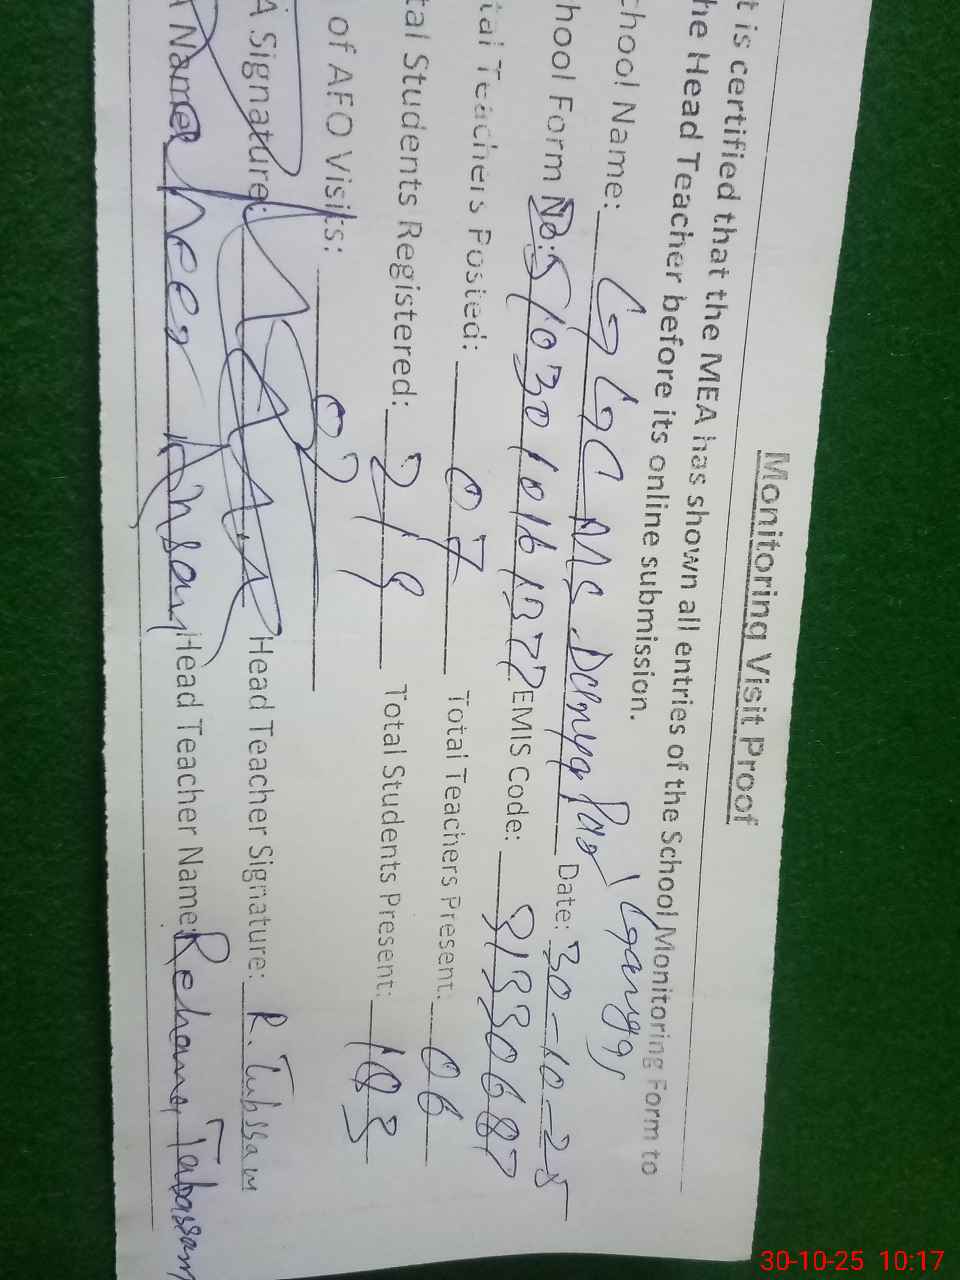 Monitoring Visit Proof
t is certified that the MEA has shown all entries of the School Monitoring Form to
he Head Teacher before its online submission.
chool Name: GGC MS Dunya Pur \ Date: 30-10-25
hool Form No: EMIS Code: 31330687
tal Teachers Posted: 07 Total Teachers Present: 06
tal Students Registered: 219 Total Students Present: 103
of AFO Visits: 02
A Signature: Head Teacher Signature: R. Tubssam
Name Ansari Head Teacher Name: Rehana Tabassam
30-10-25 10:17